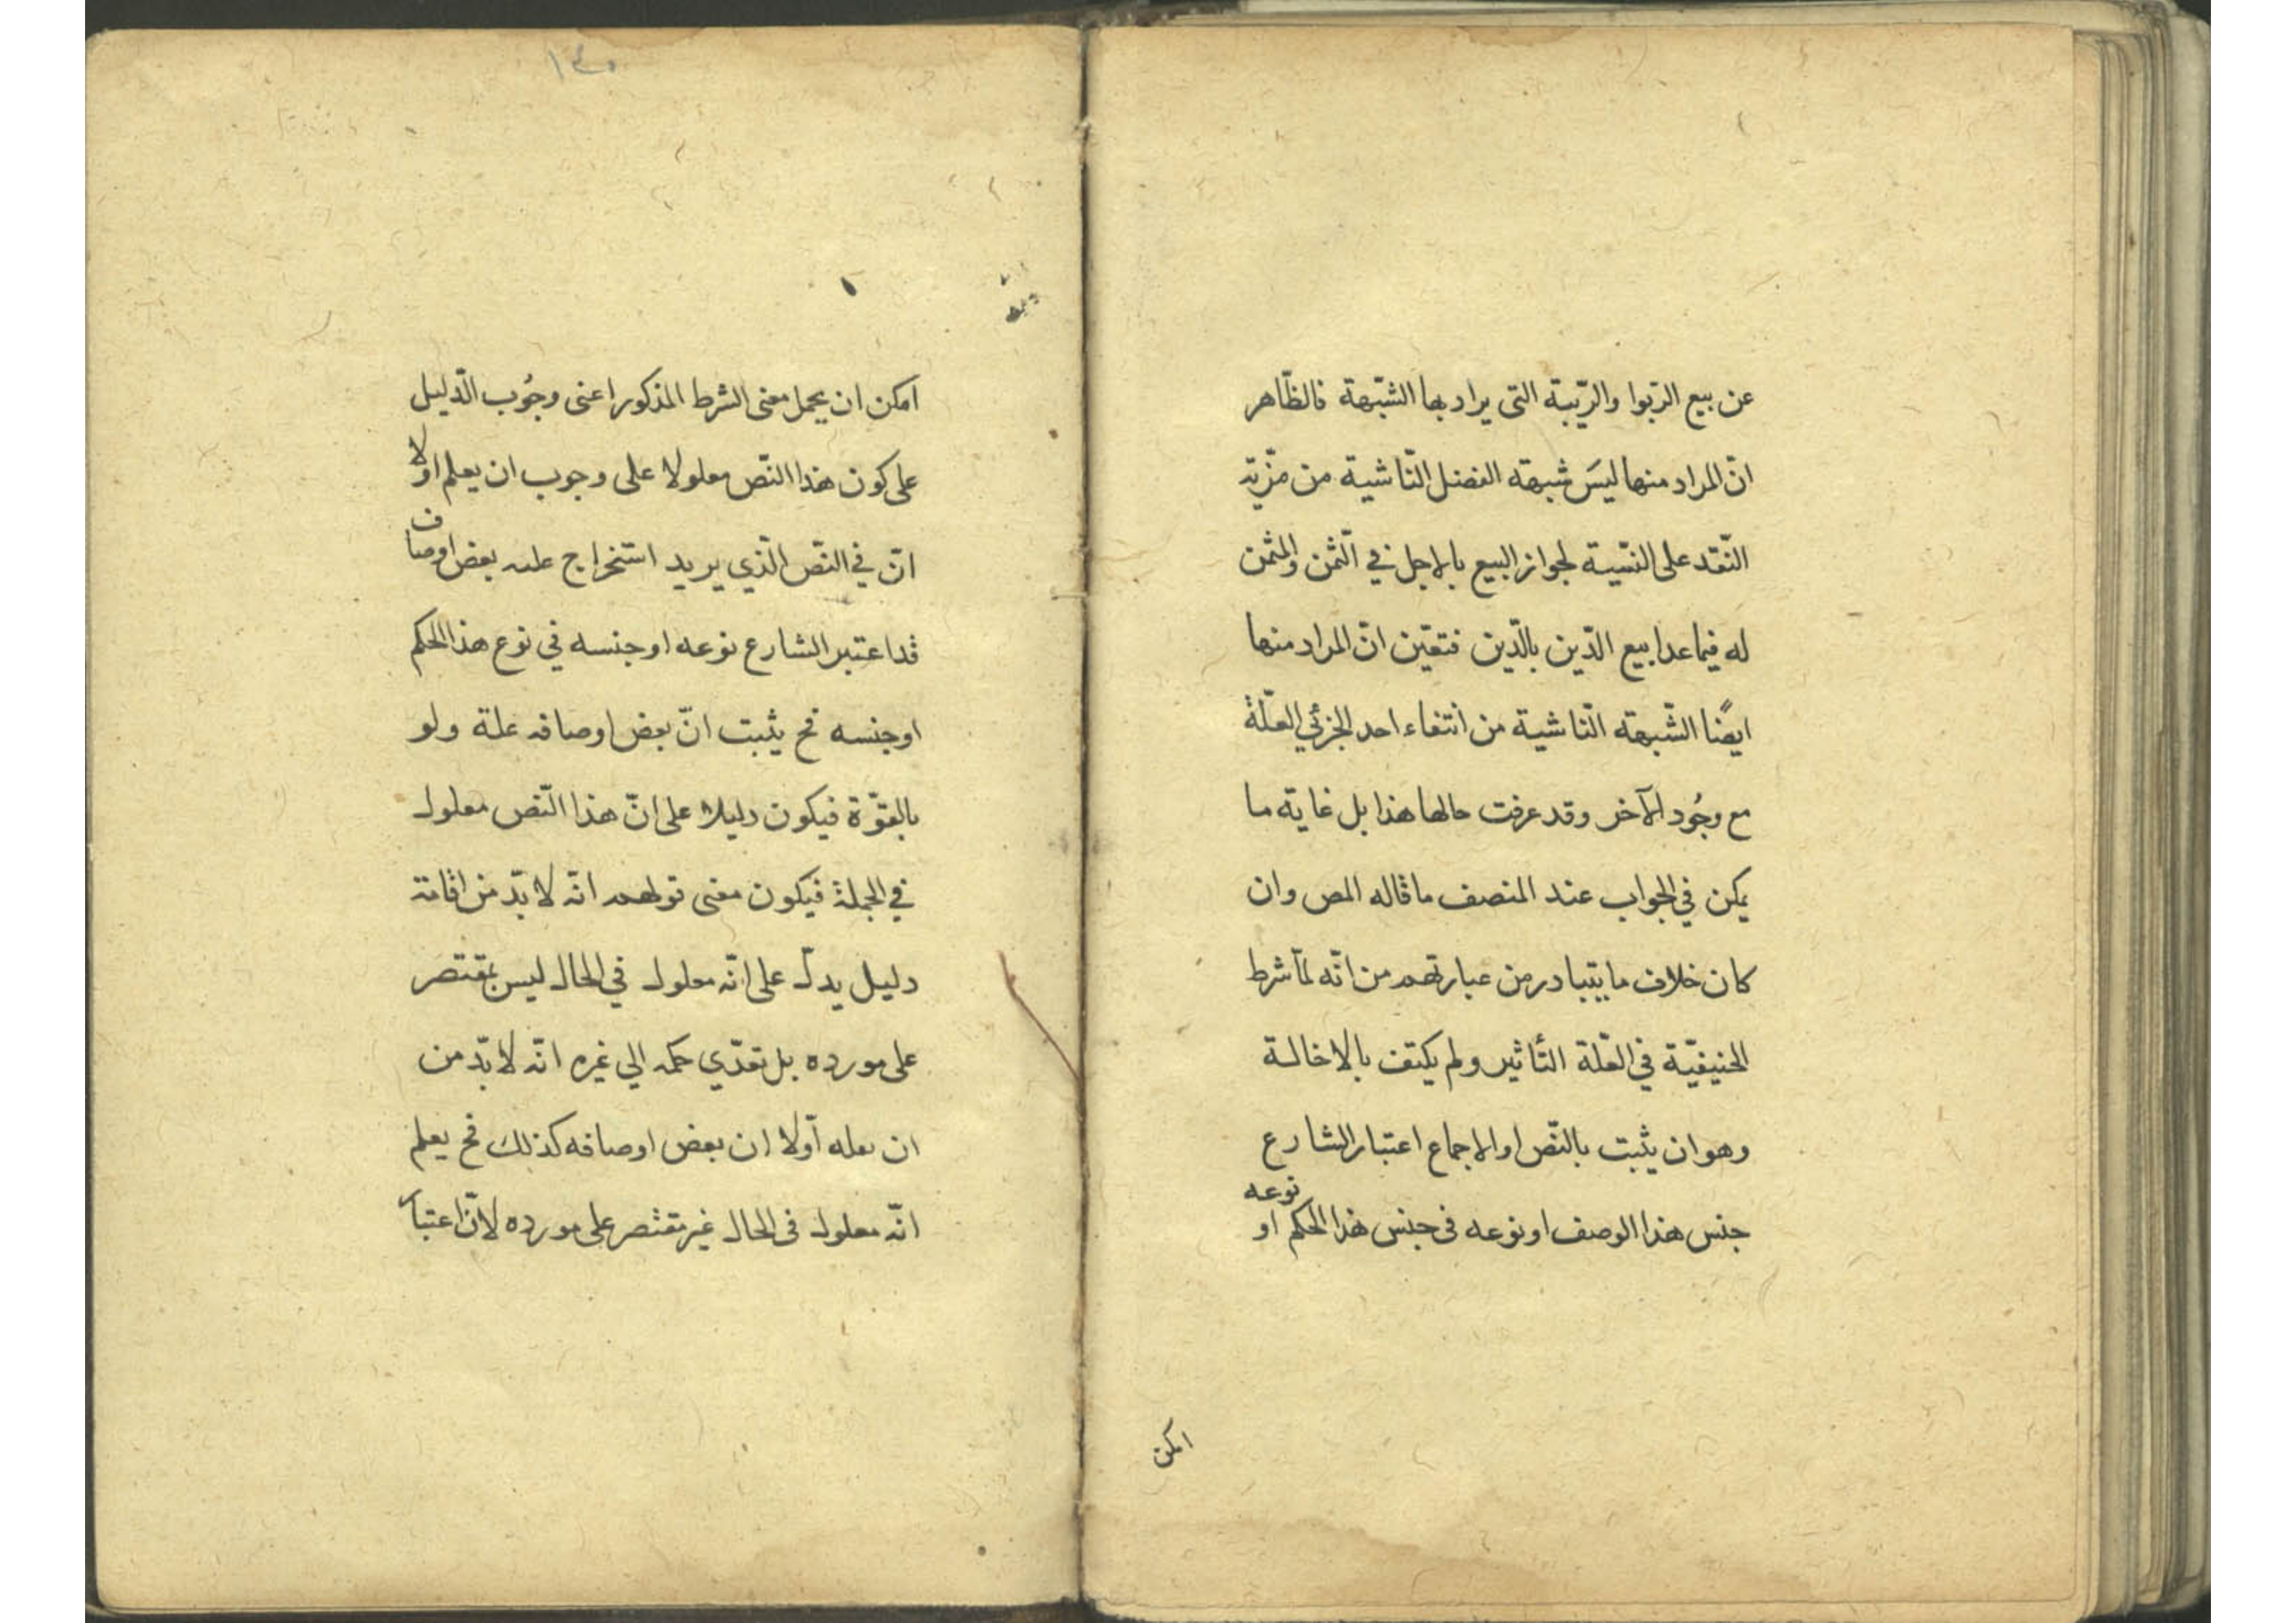 عن بيع الرّبوا والرّيبة التى يراد بها الشّبهة فالظّاهر
انّ المراد منها ليسَ شبهته الفضل النّاشية من مزّيّة
النّقد على النسّية لجواز البيع بالاجل في الثّمن والمثمن
له فيما عدا بيع الدّين بالدّين فتعيّن انّ المراد منها
ايضًا الشّبهته النّاشية من انتفاء احد الجزئي العلّة
مع وجُود الآخر وقد عرفت حالها هذا بل غايته ما
يمكن في الجواب عند المنصف ما قاله المص وان
كان خلاف ما يتبادر من عبارتهم من انّه لمّا شرط
الحنيفيّة في العّلة التأثير ولم يكتف بالاخالة
وهو ان يثبت بالنّص او الاجماع اعتبار الشارع
جنس هذا الوصف او نوعه فى جنس هذا الحكم او نوعه
امكن
١٤٠
امكن ان يحمل معنى الشرط المذكور اعنى وجُوب الدّليل
على كون هذا النّص معلولا على وجوب ان يعلم اولا
انّ في النّص الّذي يريد استخراج علته بعض اوصاف
قد اعتبر الشارع نوعه او جنسه في نوع هذا الحكم
او جنسه فح يثبت انّ بعض اوصافه علة ولو
بالقوّة فيكون دليلا على انّ هذا النّص معلول
في الجملة فيكون معنى قولهم انّه لا بدّ من اقامة
دليل يدلّ على انّه معلول في الحال ليس بمقتصر
على مورده بل تعدّي حكمه الي غيره انّه لا بدّ من
ان يعلم أوّلا ان بعض اوصافه كذلك فح يعلم
انّه معلول فى الحال غير مقتصر على مورده لانّ اعتبار